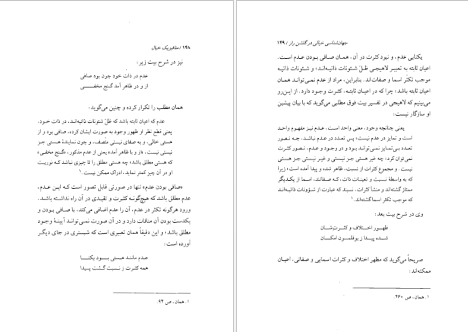 ۱۴۸ / متافیزیک خیال
نیز در شرح بیت زیر:
عدم در ذات خود چون بود صافی
از و ظاهر آمد گنج مخفی
همان مطلب را تکرار کرده و چنین می‌گوید:
عدم اضافی که اعیان ثابته باشد که ظل شئونات ذاتیه‌اند، در ذات خود،
یعنی قطع نظر از ظهور وجود به صورت ایشان کرده، صافی بود و از
هستی خالی، و به صفای نیستی متصف، و چون نمایندهٔ هستی جز
نیستی نیست،
که هستی مطلق باشد؛ چه هستی مطلق را تا چیزی نباشد که نوریت
او در آن چیز کمتر نماید، ادراک ممکن نیست.۱
«صافی بودن عدم» تنها در صورتی قابل تصور است که این عدم،
عدم مطلق باشد که هیچ‌گونه کثرت و تقیدی در آن راه نداشته باشد.
ورود هرگونه تکثر در عدم، آن را عدم اضافی می‌کند، با صافی بودن و
یکدست بودن آن منافات دارد و در آن صورت نمی‌تواند آیینهٔ وجود
مطلق باشد؛ و این دقیقاً همان تعبیری است که شبستری در جای دیگر
آورده است:
عدم مانند هستی بود یکتا
همه کثرت ز نسبت گشت پیدا
۱. همان، ص ۹۴
جهان‌شناسی خیالی در گلشن راز / ۱۴۹
یکتایی عدم، و نبود کثرت در آن، همان صافی بودن عدم است.
اعیان ثابته به تعبیر لاهیجی ظلّ شئونات ذاتیه‌اند؛ و شئونات ذاتیه
موجب تکثر اسما و صفات‌اند. بنابراین، مراد از عدم نمی‌تواند همان
اعیان ثابته باشد؛ چرا که در اعیان ثابته، کثرت وجود دارد. از این‌رو
می‌بینیم که لاهیجی در تفسیر بیت فوق مطلبی می‌گوید که با بیان پیشین
او سازگار نیست:
یعنی چنانچه وجود، معنی واحد است، عدم نیز مفهوم واحد
است؛ زیرا که تمیز و تعدد در عدم نیست
تعدد بی‌تمایز نمی‌تواند بود و در وجود و عدم، تصور کثرت
نمی‌توان کرد؛ چه غیر هستی جز نیستی و غیر نیستی جز هستی
نیست و مجموع کثرات از نسب، ظاهر شده و پیدا آمده است؛ زیرا
که به واسطهٔ نسبت و تعینات ذات، که صفاتند، اسما از یکدیگر
ممتاز گشته‌اند و منشأ کثرات، نسبند که عبارت از شئونات ذاتیه‌اند
که موجب تکثر اسما گشته‌اند.۱
وی در شرح بیت بعد:
ظهور اختلاف و کثرت شان
شده پیدا ز بوقلمون امکان
صریحاً می‌گوید که مظهر اختلاف و کثرات اسمایی و صفاتی، اعیان
ممکنه‌اند:
۱. همان، ص ۴۶۰